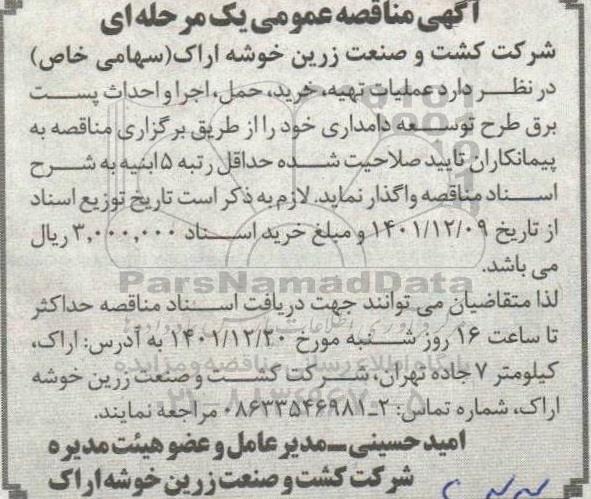 آگهی مناقصه عمومی یک مرحله ای
شرکت کشت و صنعت زرین خوشه اراک(سهامی خاص)
در نظر دارد عملیات تهیه، خرید، حمل، اجرا و احداث پست
برق طرح توسعه دامداری خود را از طریق برگزاری مناقصه به
پیمانکاران تایید صلاحیت شده حداقل رتبه ۵ ابنیه به شرح
اسناد مناقصه واگذار نماید. لازم به ذکر است تاریخ توزیع اسناد
از تاریخ ۱۴۰۱/۱۲/۰۹ و مبلغ خرید اسناد ۳,۰۰۰,۰۰۰ ریال
می باشد.
ParsNamadData
لذا متقاضیان می توانند جهت دریافت اسناد مناقصه حداکثر
تا ساعت ۱۶ روز شنبه مورخ ۱۴۰۱/۱۲/۲۰ به آدرس: اراک،
کیلومتر ۷ جاده تهران، شرکت کشت و صنعت زرین خوشه
اراک، شماره تماس: ۲-۰۸۶۳۳۵۴۶۹۸۱ مراجعه نمایند.
امید حسینی - مدیر عامل و عضو هیئت مدیره
شرکت کشت و صنعت زرین خوشه اراک